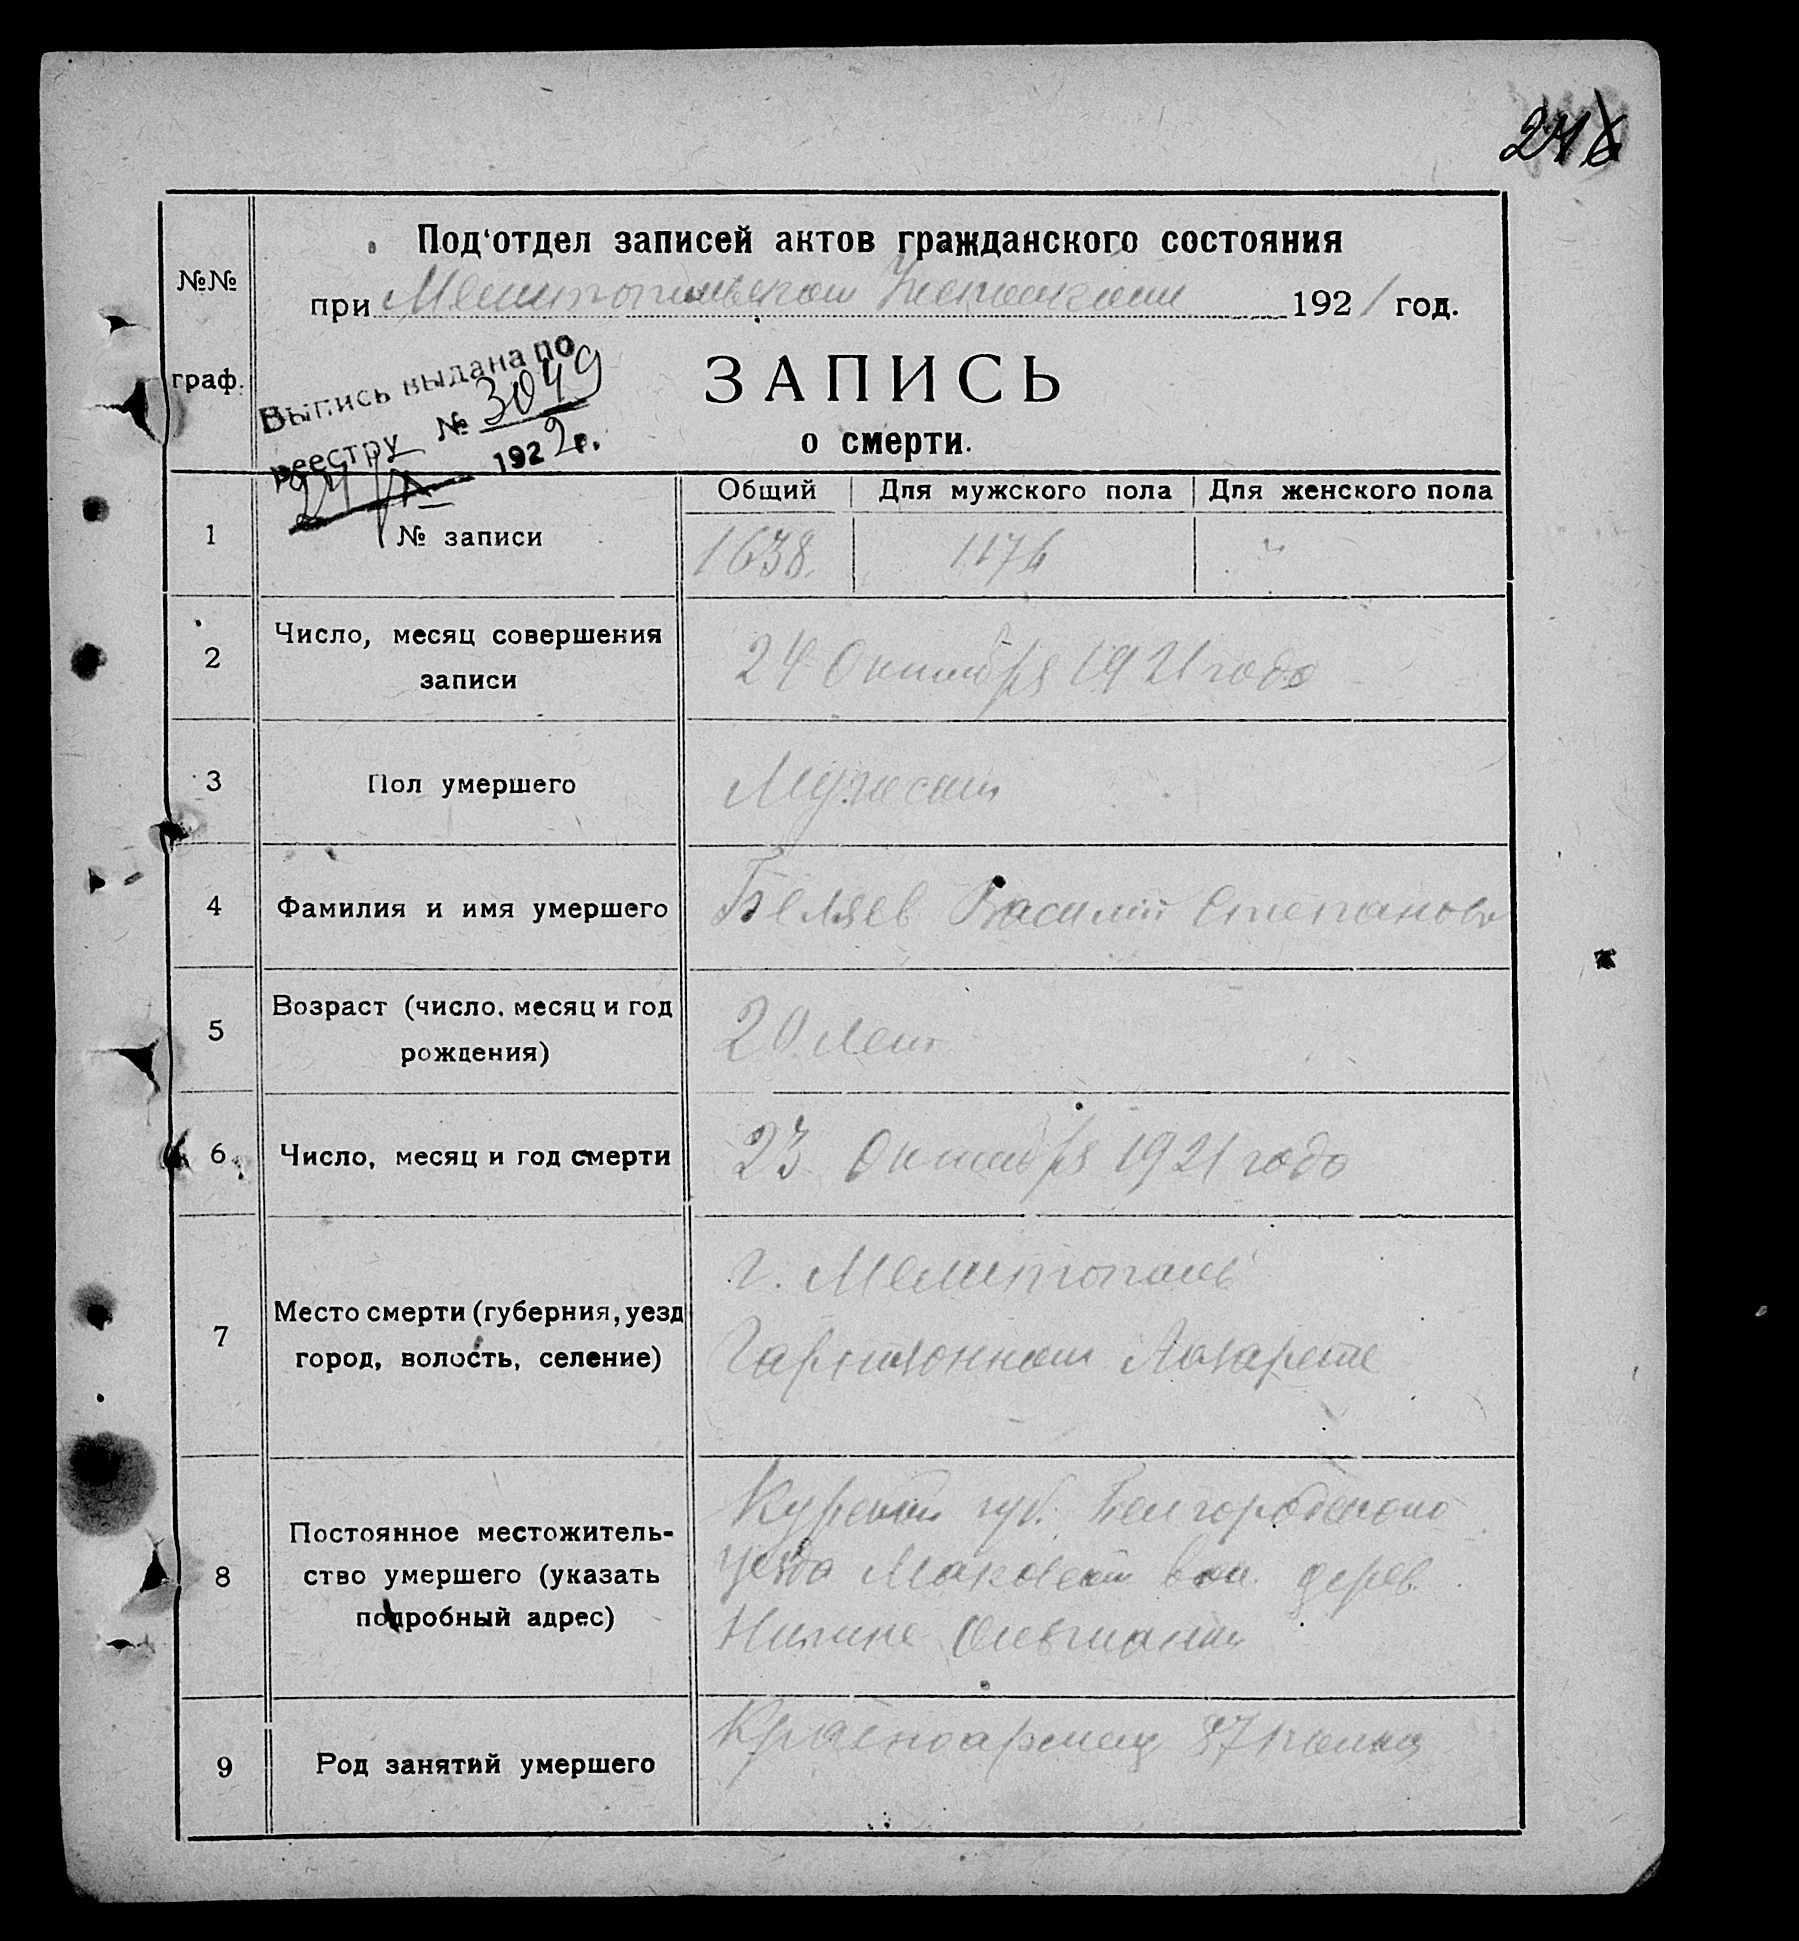 24
Под‘отдел записей актов гражданского состояния
№№
при Мелитопольском 1921 год.
граф.
Выпись выдана по
реестру № 3049
1922 г.
ЗАПИСЬ
о смерти.
Общий Для мужского пола Для женского пола
1 № записи 1638. 1176 "
2 Число, месяц совершения
записи
24 Октября 1921 года
3 Пол умершего Мужской
4 Фамилия и имя умершего Беляев Василий Степанов
5 Возраст (число, месяц и год
рождения)
20 лет
6 Число, месяц и год смерти 23 Октября 1921 года
7 Место смерти (губерния, уезд
город, волость, селение)
г. Мелитополь
Гарнизонном Лазарете
8 Постоянное местожитель-
ство умершего (указать
подробный адрес)
Курской губ. Белгородского
уезда вол. дерев.
9 Род занятий умершего Красноармеец 87 полка